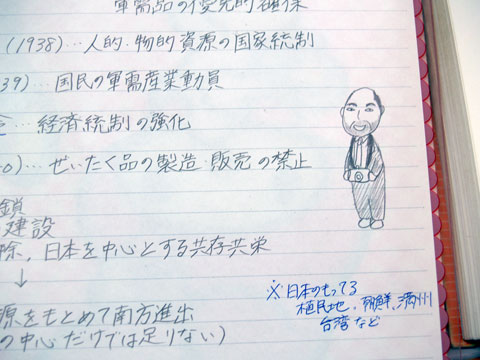 軍需品の優先的確保
(1938)…人的・物的資源の国家統制
39)… 国民の軍需産業動員
…経済統制の強化
0)…ぜいたく品の製造・販売の禁止
鎖
建設
除，日本を中心とする共存共栄
↓
源をもとめて南方進出
の中心だけでは足りない)
※日本のもってる
植民地，朝鮮，満州
台湾など